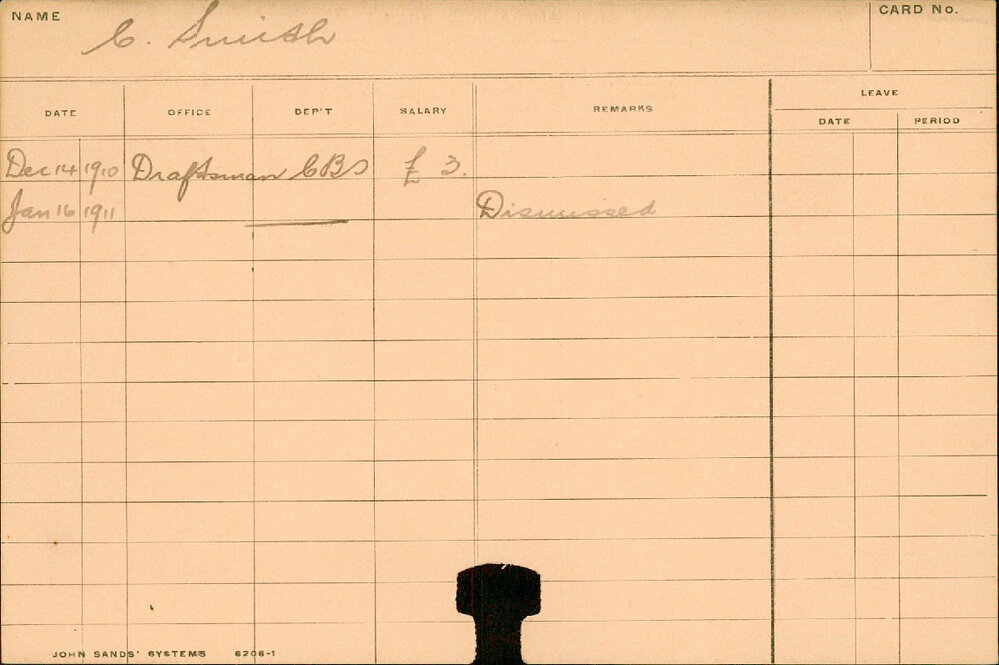 NAME C. Smith CARD No.
DATE OFFICE DEP'T SALARY REMARKS LEAVE
DATE PERIOD
Dec 14 1910 Draftsman CBS £ 3.
Jan 16 1911 Dismissed
JOHN SANDS' SYSTEMS 6206-1